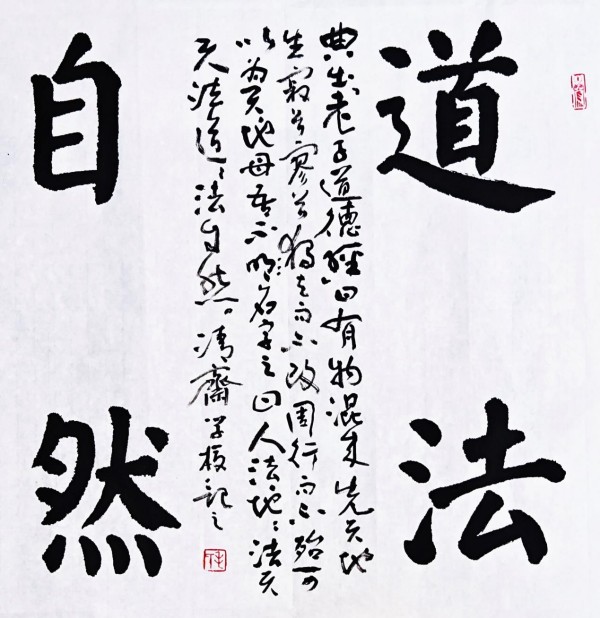 道法
典出老子道德經曰有物混成先天地
生寂兮寥兮獨立而不改周行而不殆可
以为天地母吾不明名字之曰人法地〻法天
天法道〻法自然。清齋学記之
自然